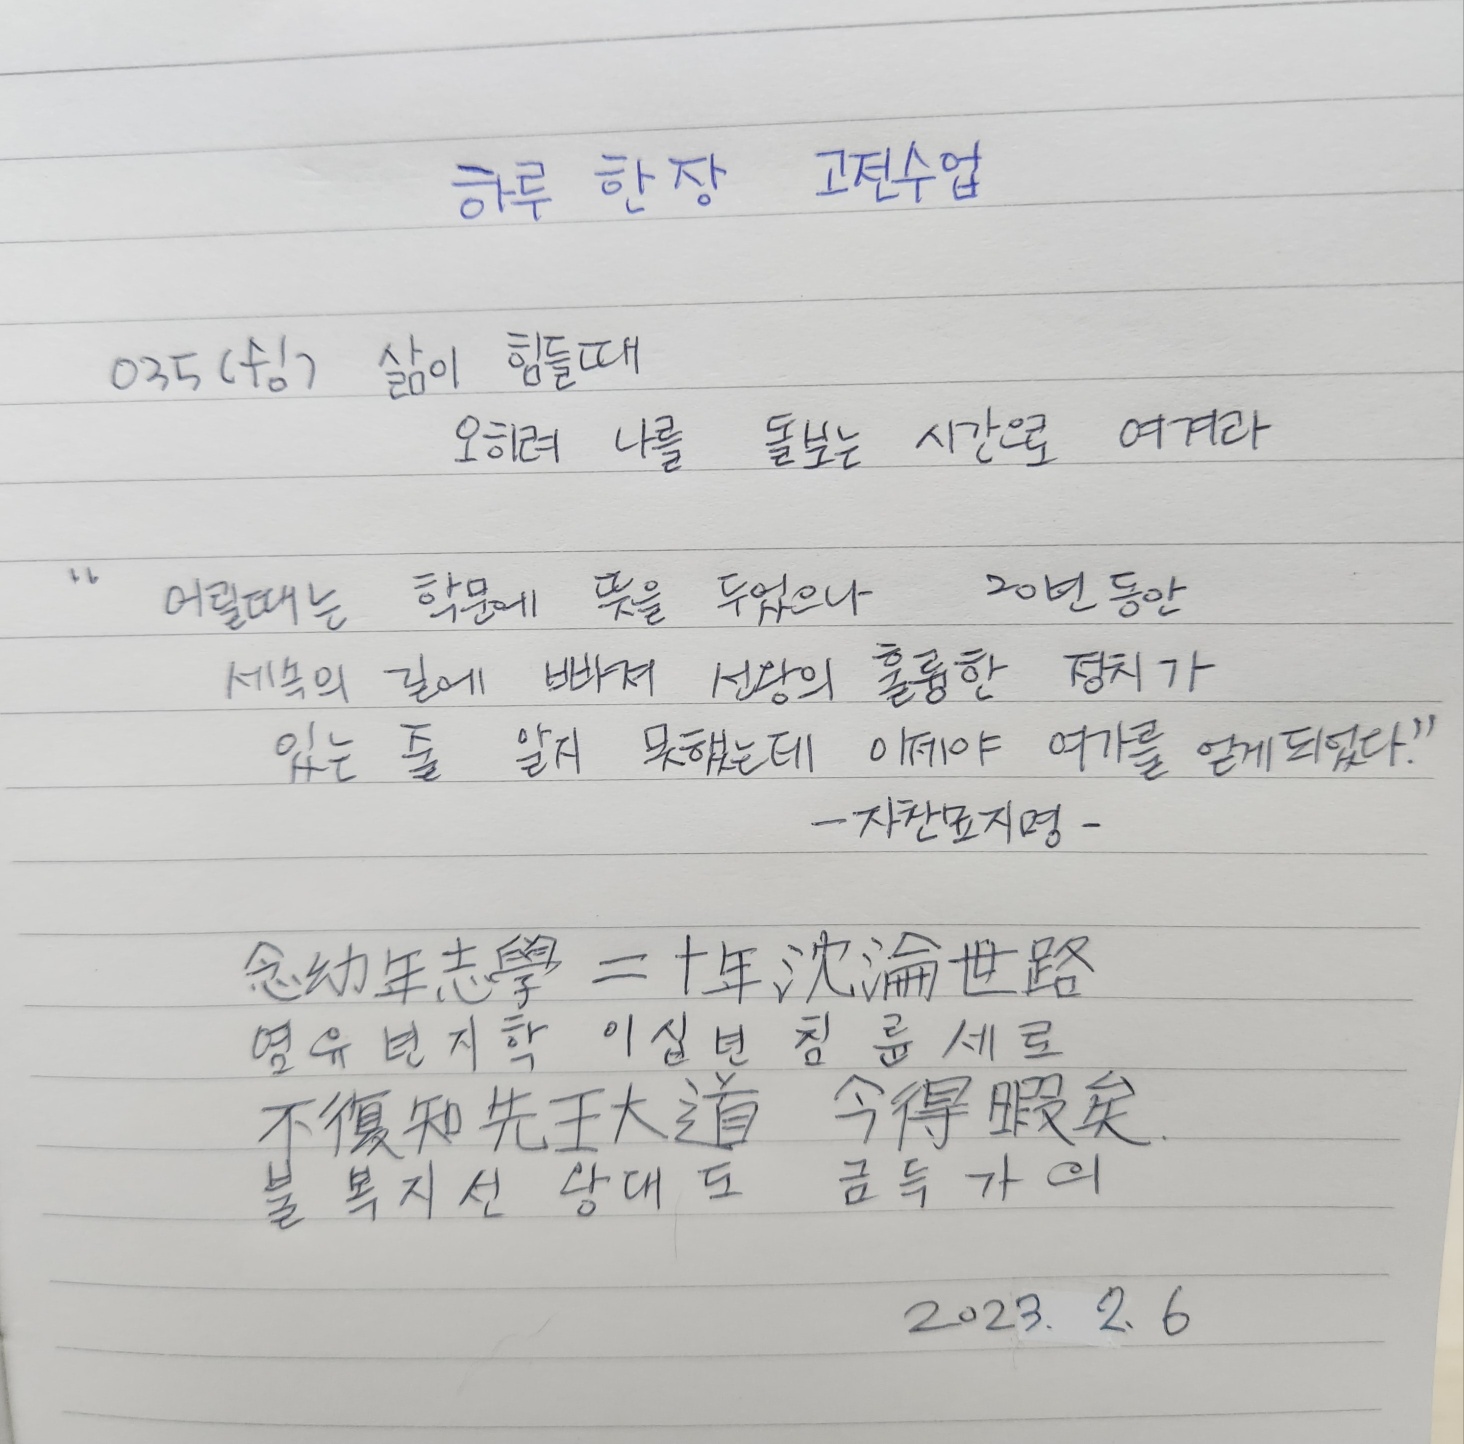 하루 한 장 고전수업
035(쉼) 삶이 힘들때
오히려 나를 돌보는 시간으로 여겨라
“ 어릴때는 학문에 뜻을 두었으나 20년 동안
세속의 길에 빠져 선왕의 훌륭한 정치가
있는 줄 알지 못했는데 이제야 여가를 얻게 되었다.”
- 자찬묘지명 -
念幼年志學 二十年沈淪世路
염유년지학 이십년침륜세로
不復知先王大道 今得暇矣.
불복지선왕대도 금득가의
2023. 2. 6